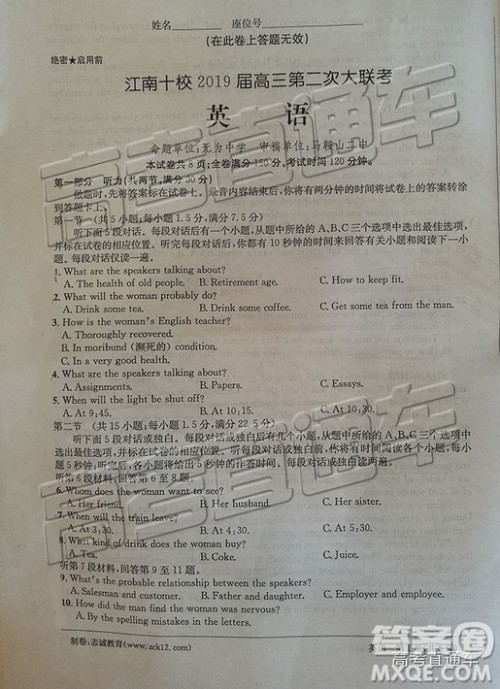 姓名 座位号
(在此卷上答题无效)
绝密★启用前
江南十校2019届高三第二次大联考
英 语
命题单位:无为中学 审稿单位:马鞍山二中
本试卷共8页;全卷满分150分,考试时间120分钟。
第一部分 听力(共两节,满分30分)
做题时,先将答案标在试卷上。录音内容结束后,你将有两分钟的时间将试卷上的答案转涂
到答题卡上。
第一节 (共5小题;每小题1.5分,满分7.5分)
听下面5段对话。每段对话后有一个小题,从题中所给的A、B、C三个选项中选出最佳选项,
并标在试卷的相应位置。听完每段对话后,你都有10秒钟的时间来回答有关小题和阅读下一小
题。每段对话仅读一遍。
1. What are the speakers talking about?
A. The health of old people. B. Retirement age. C. How to keep fit.
2. What will the woman probably do?
A. Drink some tea. B. Drink some coffee. C. Get some tea from the man.
3. How is the woman's English teacher?
A. Thoroughly recovered.
B. In moribund (濒死的) condition.
C. In a very good health.
4. What are the speakers talking about?
A. Assignments. B. Papers. C. Essays.
5. When will the light be shut off?
A. At 9:45. B. At 10:15. C. At 10:30.
第二节 (共15小题;每小题1.5分,满分22.5分)
听下面5段对话或独白。每段对话或独白后有几个小题,从题中所给的A、B、C三个选项中
选出最佳选项,并标在试卷的相应位置。听每段对话或独白前,你将有时间阅读各个小题,每小
题5秒钟;听完后,各小题将给出5秒钟的作答时间。每段对话或独白读两遍。
听第6段材料,回答第6至8题。
6. Whom does the woman want to see?
A. Her friend. B. Her husband. C. Her sister.
7. When will the train leave?
A. At 3:30. B. At 4:30. C. At 5:30.
8. What kind of drink does the woman buy?
A. Tea. B. Coke. C. Juice.
听第7段材料,回答第9至11题。
9. What's the probable relationship between the speakers?
A. Salesman and customer. B. Father and daughter. C. Employer and employee.
10. How did the man find the woman was nervous?
A. By the spelling mistakes in the letters.
制卷:志诚教育(www.zck12.com)
高考直通车
答案圈
高考直通车